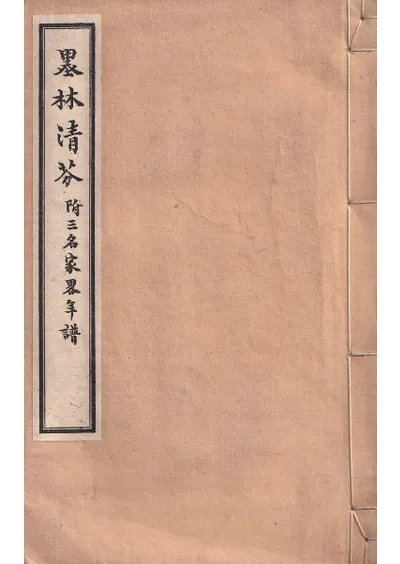 墨林清芬 附三名家畧年譜